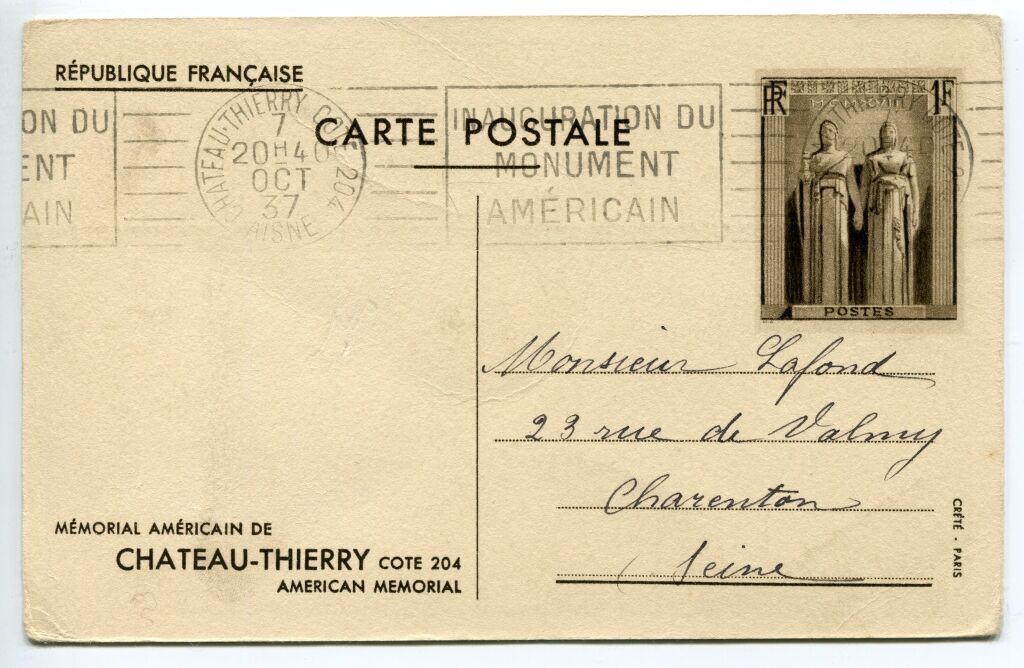 RÉPUBLIQUE FRANÇAISE
CARTE POSTALE
ON DU
ENT
AIN
CHATEAU-THIERRY COTE 204
7
20H40
OCT
37
AISNE
INAUGURATION DU
MONUMENT
AMÉRICAIN
RF
1F
POSTES
Monsieur Lafond
23 rue de Valmy
Charenton
Seine
MÉMORIAL AMÉRICAIN DE
CHATEAU-THIERRY COTE 204
AMERICAN MEMORIAL
CRÉTÉ - PARIS